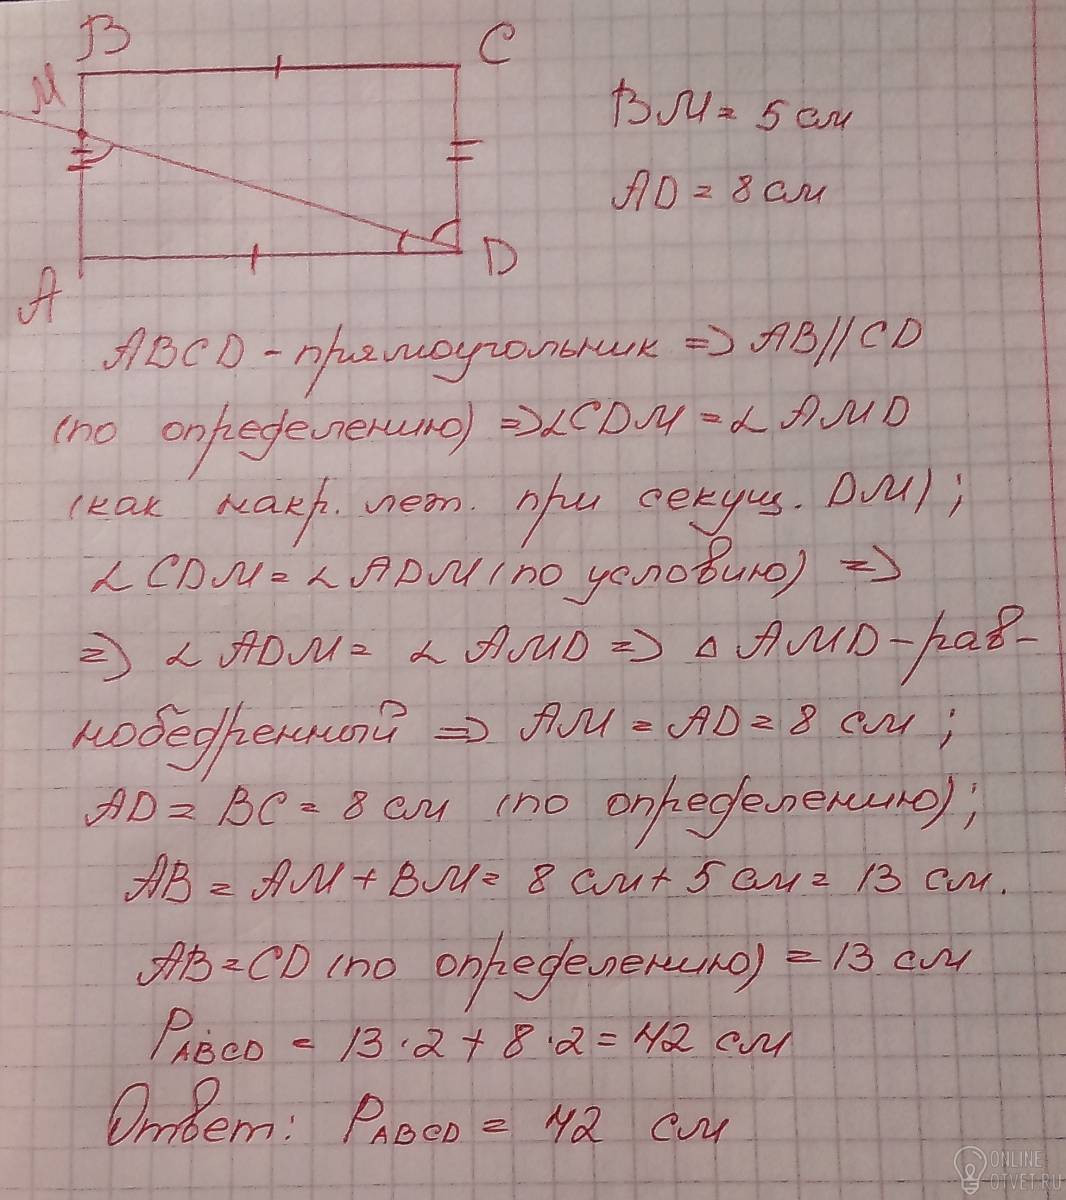 B
C
M
BM = 5 см
AD = 8 см
D
A
ABCD - прямоугольник => AB//CD
(по определению) => ∠CDM = ∠AMD
(как накр. леж. при секущ. DM);
∠CDM = ∠ADM (по условию) =>
=> ∠ADM = ∠AMD => △AMD - рав-
нобедренный => AM = AD = 8 см;
AD = BC = 8 см (по определению);
AB = AM + BM = 8 см + 5 см = 13 см.
AB = CD (по определению) = 13 см
PABCD = 13 · 2 + 8 · 2 = 42 см
Ответ: PABCD = 42 см
ONLINE
OTVET.RU